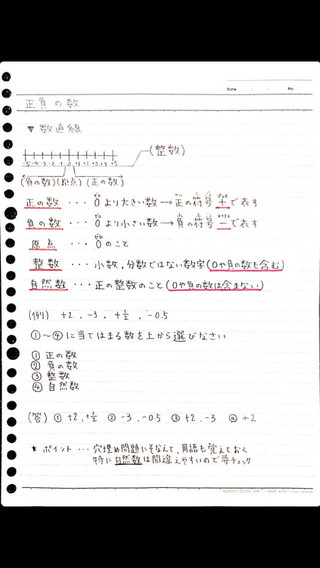 Date
No.
正負の数
▼ 数直線
-5 -4 -3 -2 -1 0 +1 +2 +3 +4 +5
(整数)
(負の数)(原点)(正の数)
正の数 ・・・ 0より大きい数→正の符号+で表す
負の数 ・・・ 0より小さい数→負の符号−で表す
原点 ・・・ 0のこと
整数 ・・・ 小数,分数ではない数字(0や負の数も含む)
自然数 ・・・ 正の整数のこと(0や負の数は含まない)
(例) +2 , -3 , +½ , -0.5
①〜④に当てはまる数を上から選びなさい
① 正の数
② 負の数
③ 整数
④ 自然数
(答) ① +2,+½ ② -3,-0.5 ③ +2,-3 ④ +2
* ポイント ・・・ 穴埋め問題にそなえて,用語も覚えておく
特に自然数は間違えやすいので要チェック